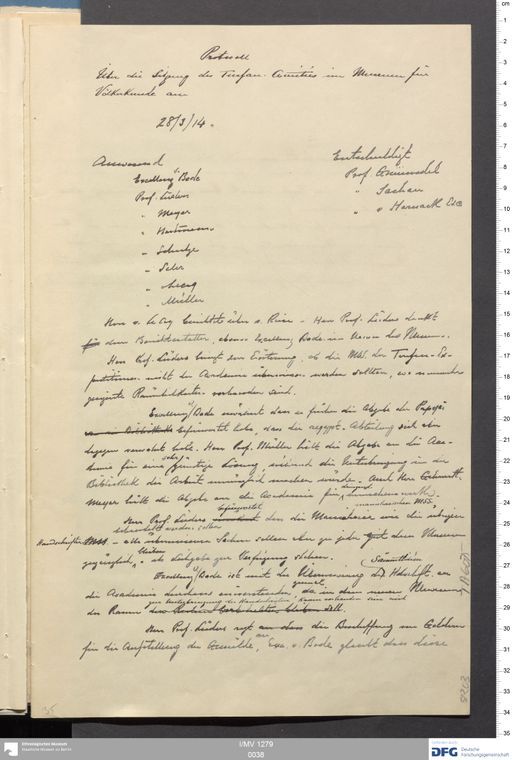 Protocoll
Über die Sitzung des Turfan-Comités im Museum für
Völkerkunde am
28/3/14.
Anwesend
Excellenz v. Bode
Prof. Lüders
" Meyer
" Hartmann
" Schulze
" Seler
" Lecoq
" Müller
Entschuldigt
Prof. Grünwedel
" Sachau
" v Harnack Exc
Herr v. Le Coq berichtet über s. Reise. Herr Prof. Lüders dankt
dem Berichterstatter, ebenso Excellenz Bode im Namen des Museums.
Herr Prof. Lüders bringt zur Erörterung, ob die MSS. der Turfan-Ex-
peditionen nicht der Academie überwiesen werden sollten, wo nunmehr
geeignete Räumlichkeiten vorhanden sind.
Excellenz v. Bode erwähnt dass er früher die Abgabe der Papyri
befürwortet habe, dass die aegypt. Abteilung sich aber
dagegen verwahrt habe. Herr Prof. Müller hält die Abgabe an die Aca-
demie für eine sehr günstige Lösung, während die Unterbringung in der
Bibliothek die Arbeit unmöglich machen würde. Auch Herr Geheimrath
Meyer hält die Abgabe an die Academie für
Herr Prof. Lüders befürwortet dass die Manichaica wie die übrigen
Handschriften
alle überwiesenen Sachen sollen aber zu jeder Zeit dem Museum
gegenüber als Leihgabe zur Verfügung stehen.
Excellenz v. Bode ist mit der Überweisung der Sämmtlichen Hdschrift. an
die Academie durchaus einverstanden, da in dem neuen Museum
der Raum
zur Unterbringung der Handschriften kaum vorhanden sein wird
Herr Prof. Lüders regt an dass die Beschaffung von Geldern
für die Aufstellung der Gemälde, Exc. v. Bode glaubt dass diese
I/MV 1279
0038
Ethnologisches Museum
Staatliche Museen zu Berlin
DFG
Deutsche
Forschungsgemeinschaft